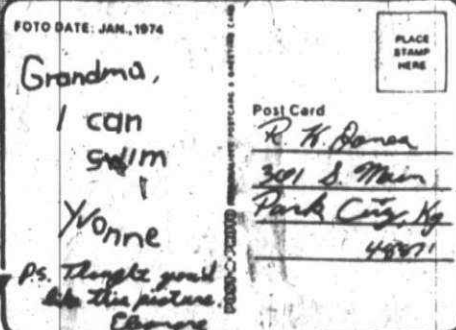 FOTO DATE: JAN., 1974
Grandma,
I can
swim
!
Yvonne
P.S. Thought you'd
like this picture.
Eleanore
PLACE
STAMP
HERE
Post Card
R. K. Jones
3091 S. Main
Park City, Ky